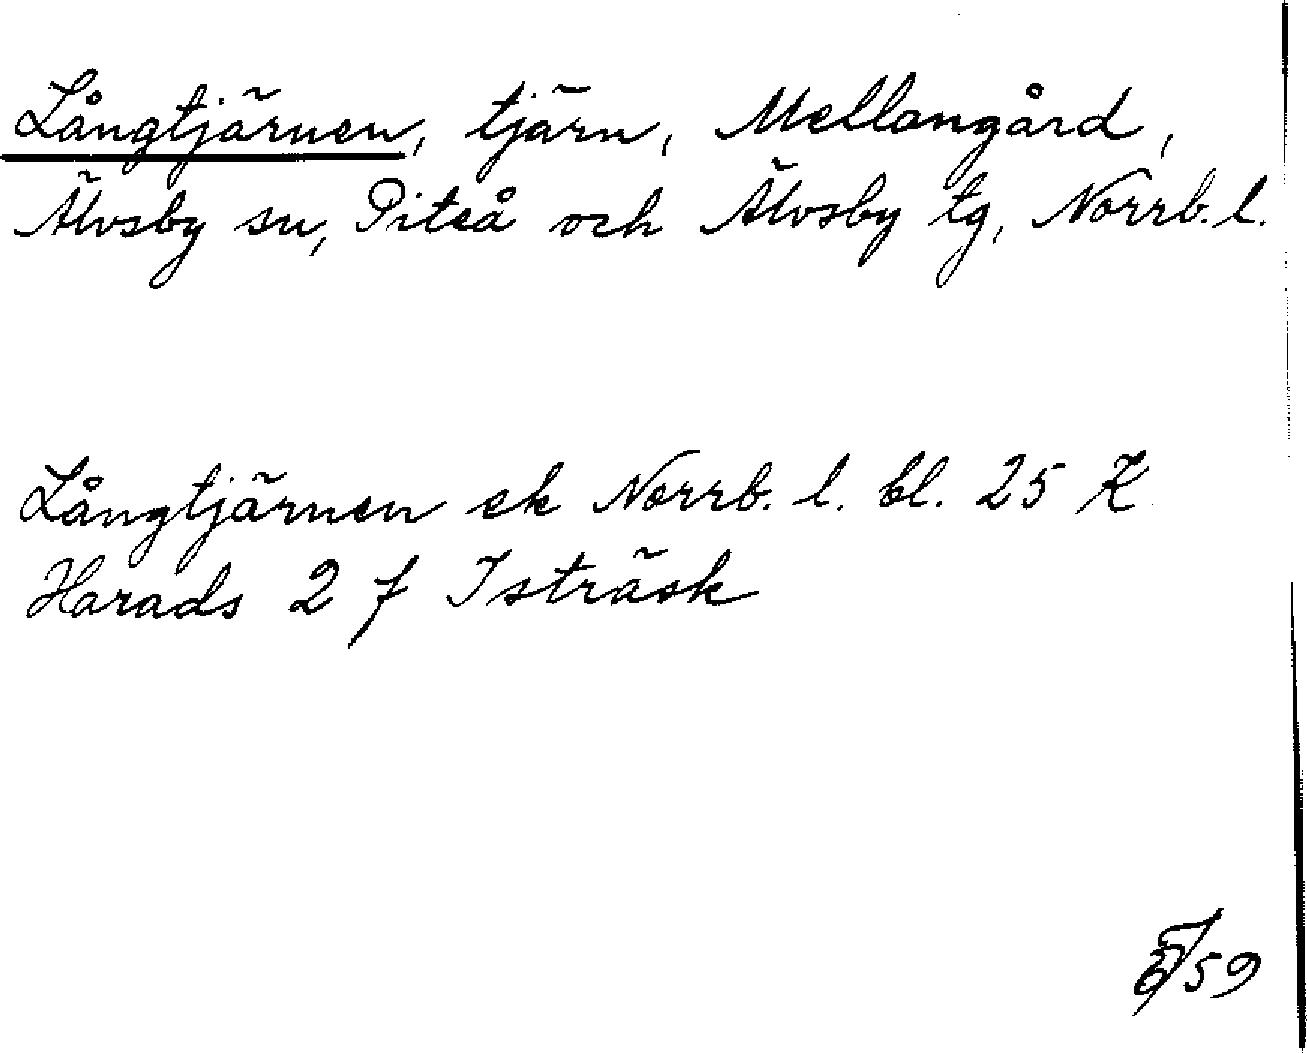 Långtjärnen, tjärn, Mellangård,
Älvsby sn, Piteå och Älvsby tg, Norrb. l.
Långtjärnen ek Norrb. l. bl. 25 K
Harads 2 f Isträsk
59